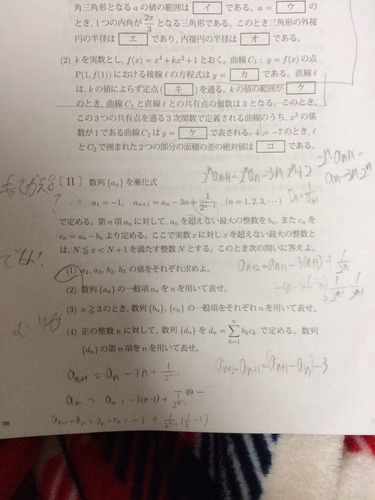 角三角形となる a の値の範囲は イ である。a = ウ の
とき,1つの内角が 2π/3 となる三角形である。このとき三角形の外接
円の半径は エ であり,内接円の半径は オ である。
(2) k を実数とし,f(x) = x⁴ + kx² + 1 とおく。曲線 C₁ : y = f(x) の点
P(1, f(1)) における接線 ℓ の方程式は y = カ である。直線 ℓ
は,k の値によらず定点( キ )を通る。k の値の範囲が ク
のとき,曲線 C₁ と直線 ℓ との共有点の個数は 3 となる。このとき,
この3つの共有点を通る3次関数で定義される曲線のうち,x³ の係
数が1である曲線 C₂ は y = ケ で表される。k = −7 のとき,ℓ
と C₂ で囲まれた2つの部分の面積の差の絶対値は コ である。
〔II〕 数列 {aₙ} を漸化式
a₁ = −1, aₙ₊₁ = aₙ − 3n + 1/2ⁿ⁻¹ (n = 1, 2, 3, )
で定める。第 n 項 aₙ に対して,aₙ を超えない最大の整数を bₙ,また cₙ を
cₙ = aₙ − bₙ より定める。ここで実数 x に対して x を超えない最大の整数と
は,N ≦ x < N + 1 を満たす整数 N とする。このとき次の問いに答えよ。
(1) a₂, a₃, b₂, b₃ の値をそれぞれ求めよ。
aₙ₊₂ = aₙ₊₁ − 3(n+1) + 1/2ⁿ
(2) 数列 {aₙ} の一般項 aₙ を n を用いて表せ。
(3) n ≧ 3 のとき,数列 {bₙ}, {cₙ} の一般項をそれぞれ n を用いて表せ。
(4) 正の整数 n に対して,数列 {dₙ} を dₙ = Σ bₖcₖ で定める。数列
{dₙ} の第 n 項を n を用いて表せ。
aₙ₊₁ = aₙ − 3n + 1/2ⁿ⁻¹
aₙ₊₂ − aₙ₊₁ = (aₙ₊₁ − aₙ) − 3
— 49 —